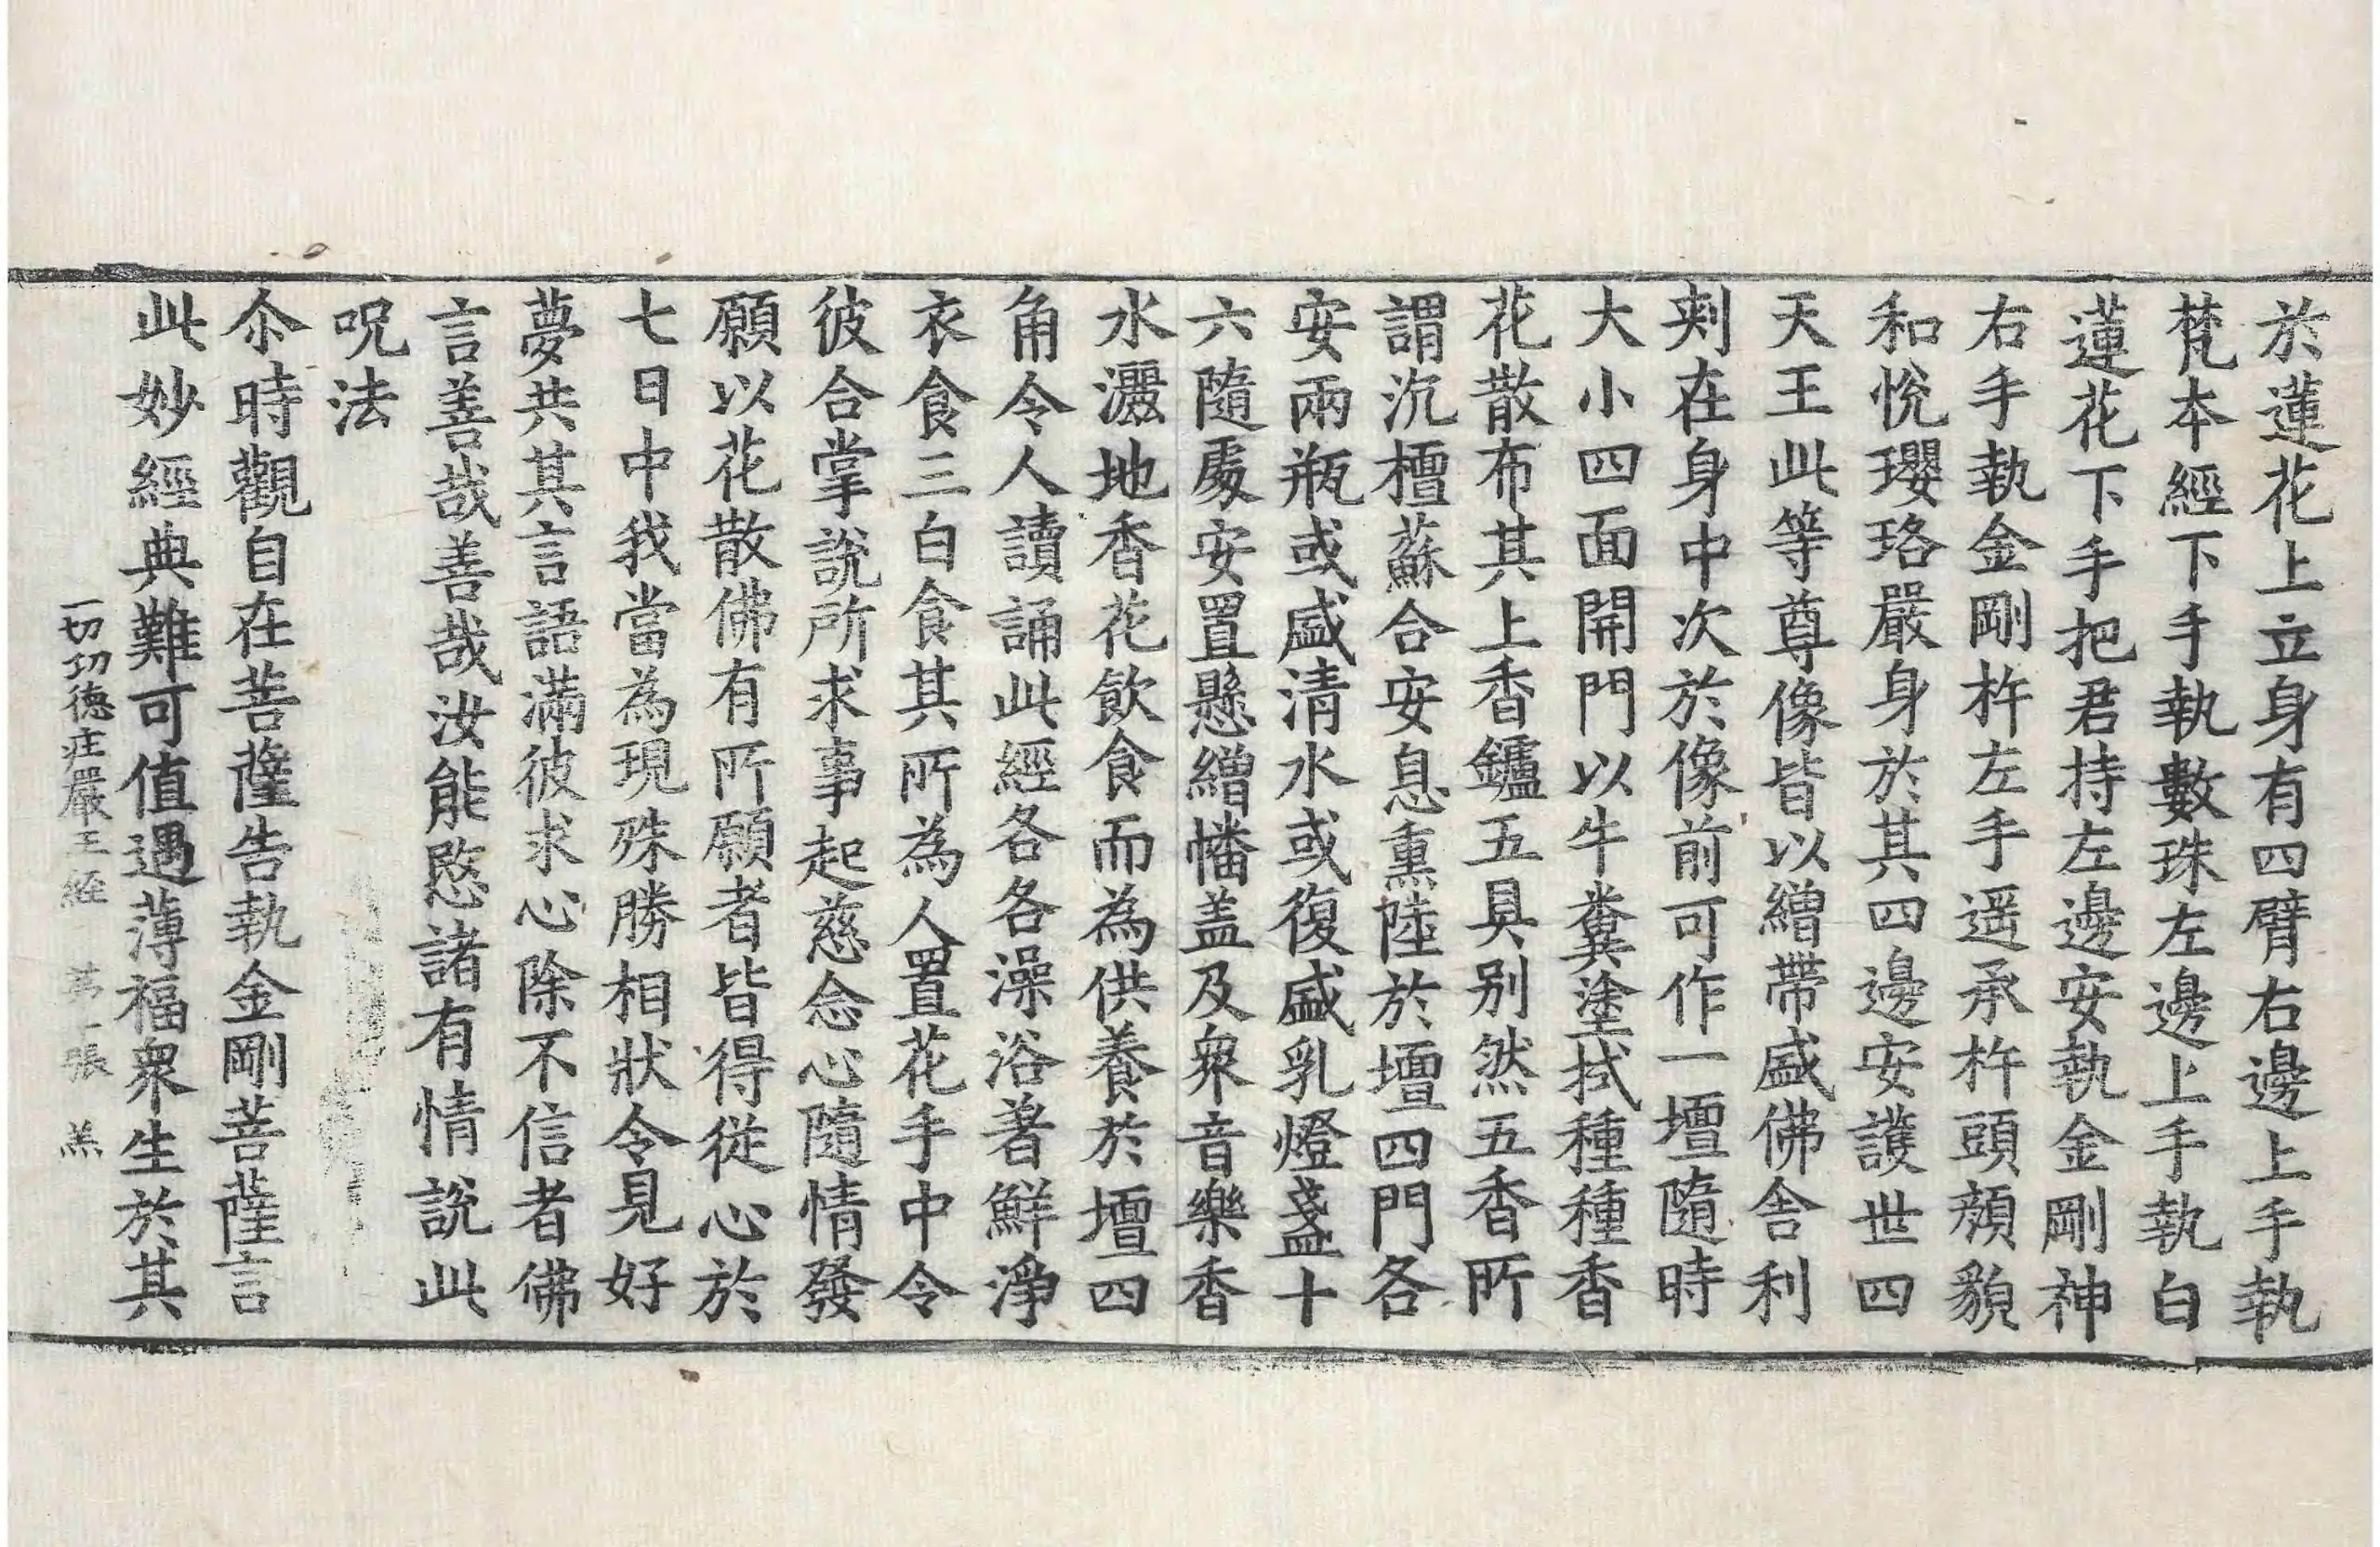 於蓮花上立身有四臂右邊上手執
梵本經下手執數珠左邊上手執白
蓮花下手把君持左邊安執金剛神
右手執金剛杵左手遥承杵頭顔貌
和悅瓔珞嚴身於其四邊安護世四
天王此等尊像皆以繒帶盛佛舍利
剌在身中次於像前可作一壇隨時
大小四面開門以牛糞塗拭種種香
花散布其上香鑪五具别然五香所
謂沉檀蘇合安息熏陸於壇四門各
安兩瓶或盛清水或復盛乳燈盞十
六隨處安置懸繒幡盖及衆音樂香
水灑地香花飲食而為供養於壇四
角令人讀誦此經各各澡浴著鮮淨
衣食三白食其所為人置花手中令
彼合掌說所求事起慈念心隨情發
願以花散佛有所願者皆得從心於
七日中我當為現殊勝相狀令見好
夢共其言語滿彼求心除不信者佛
言善哉善哉汝能愍諸有情說此
呪法
尒時觀自在菩薩告執金剛菩薩言
此妙經典難可值遇薄福衆生於其
一切功德庄嚴王經 張 羔